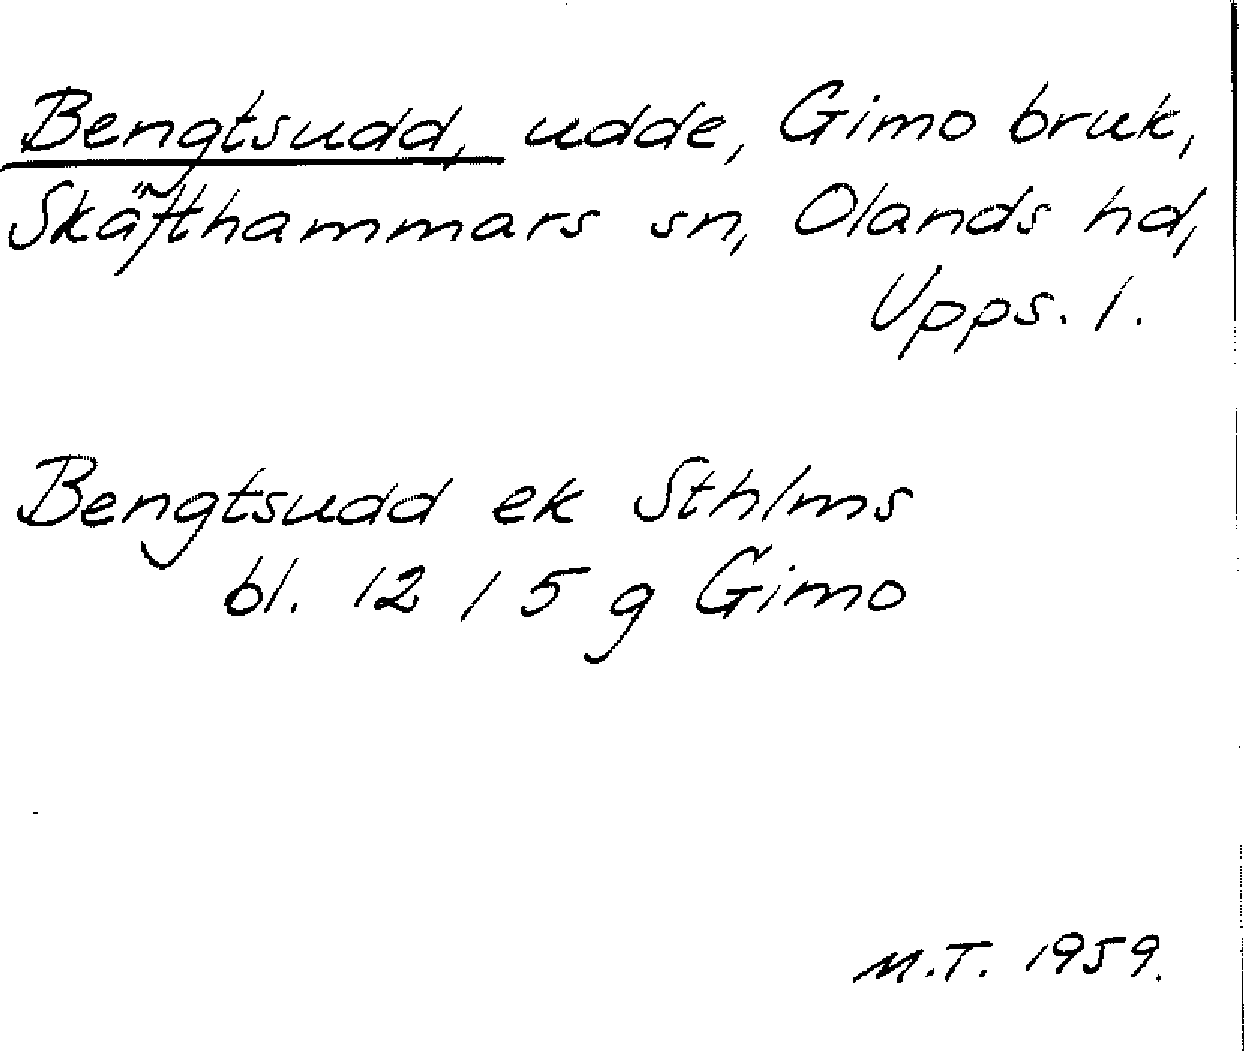 Bengtsudd, udde, Gimo bruk,
Skäfthammars sn, Olands hd,
Upps. l.
Bengtsudd ek Sthlms
bl. 12 / 5 g Gimo
M.T. 1959.